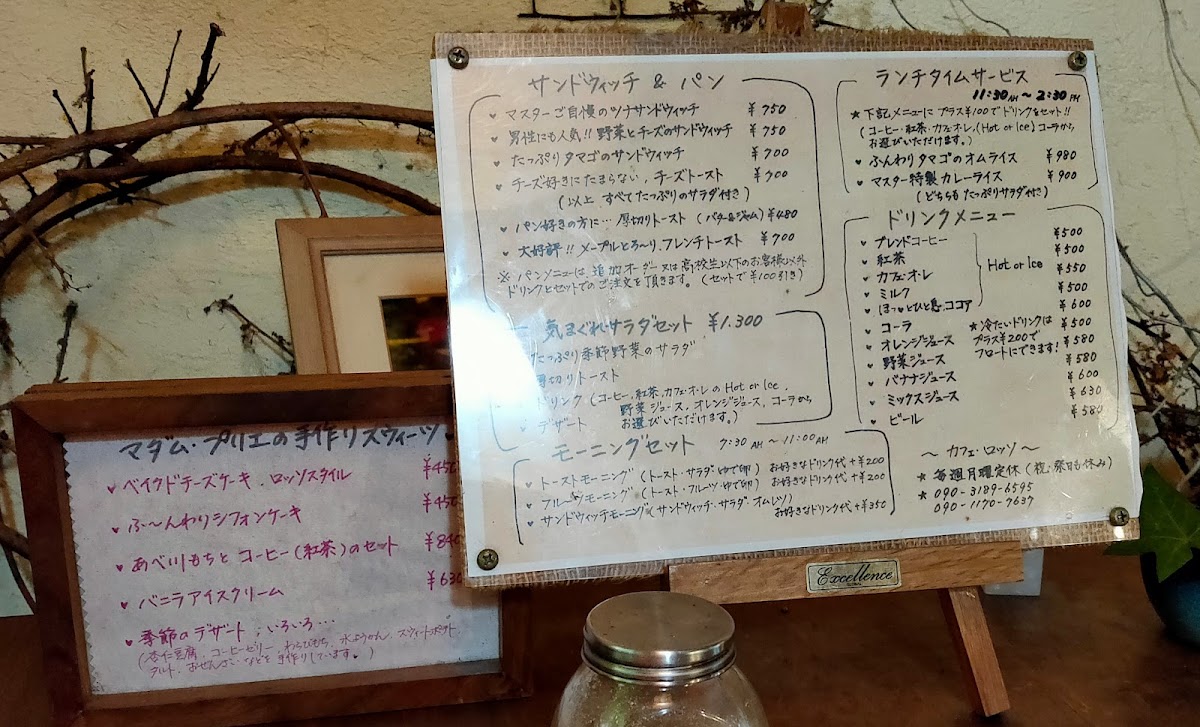 サンドウィッチ & パン
マスターご自慢のツナサンドウィッチ ¥750
男性にも人気!! 野菜とチーズのサンドウィッチ ¥750
たっぷりタマゴのサンドウィッチ ¥700
チーズ好きにたまらない、チーズトースト ¥700
(以上 すべてたっぷりのサラダ付き)
パン好きの方に… 厚切りトースト (バター&ジャム) ¥480
大好評!! メープルとろ〜り、フレンチトースト ¥700
※ パンメニューは、追加オーダー又は高校生以下のお客様以外
ドリンクとセットでのご注文を頂きます。(セットで¥100引き)
気まぐれサラダセット ¥1.300
たっぷり季節野菜のサラダ
厚切りトースト
ドリンク (コーヒー、紅茶、カフェ・オ・レの Hot or Ice、
野菜ジュース、オレンジジュース、コーラから
お選びいただけます。)
デザート
モーニングセット 7:30 AM 〜 11:00 AM
トーストモーニング (トースト・サラダ・ゆで卵) お好きなドリンク代 +¥200
フルーツモーニング (トースト・フルーツ・ゆで卵) お好きなドリンク代 +¥200
サンドウィッチモーニング (サンドウィッチ・サラダ・オムレツ) お好きなドリンク代 +¥350
ランチタイムサービス
11:30 AM 〜 2:30 PM
★ 下記メニューに プラス¥100で ドリンクをセット!!
(コーヒー・紅茶・カフェ・オ・レ、(Hot or Ice) コーラから
お選びいただけます。)
ふんわりタマゴのオムライス ¥980
マスター特製カレーライス ¥900
(どちらも たっぷりサラダ付き)
ドリンクメニュー
ブレンドコーヒー ¥500
紅茶 ¥500
カフェ・オ・レ Hot or Ice ¥550
ミルク ¥500
ほっとひと息、ココア ¥600
コーラ ¥500
オレンジジュース ¥580
野菜ジュース ¥580
バナナジュース ¥600
ミックスジュース ¥630
ビール
★ 冷たいドリンクは
プラス¥200で
フロートにできます!
〜 カフェ・ロッソ 〜
★ 毎週月曜定休 (祝、祭日も休み)
★ 090-3189-6595
090-1170-7637
Excellence
マダム・プリエの手作りスウィーツ
ベイクドチーズケーキ、ロッソスタイル ¥450
ふ〜んわりシフォンケーキ ¥450
あべ川もちと コーヒー(紅茶)のセット ¥840
バニラアイスクリーム ¥630
季節のデザート；いろいろ…
(杏仁豆腐、コーヒーゼリー、わらびもち、水ようかん、スウィートポテト、
タルト、おぜんざいなどを手作りしています。)